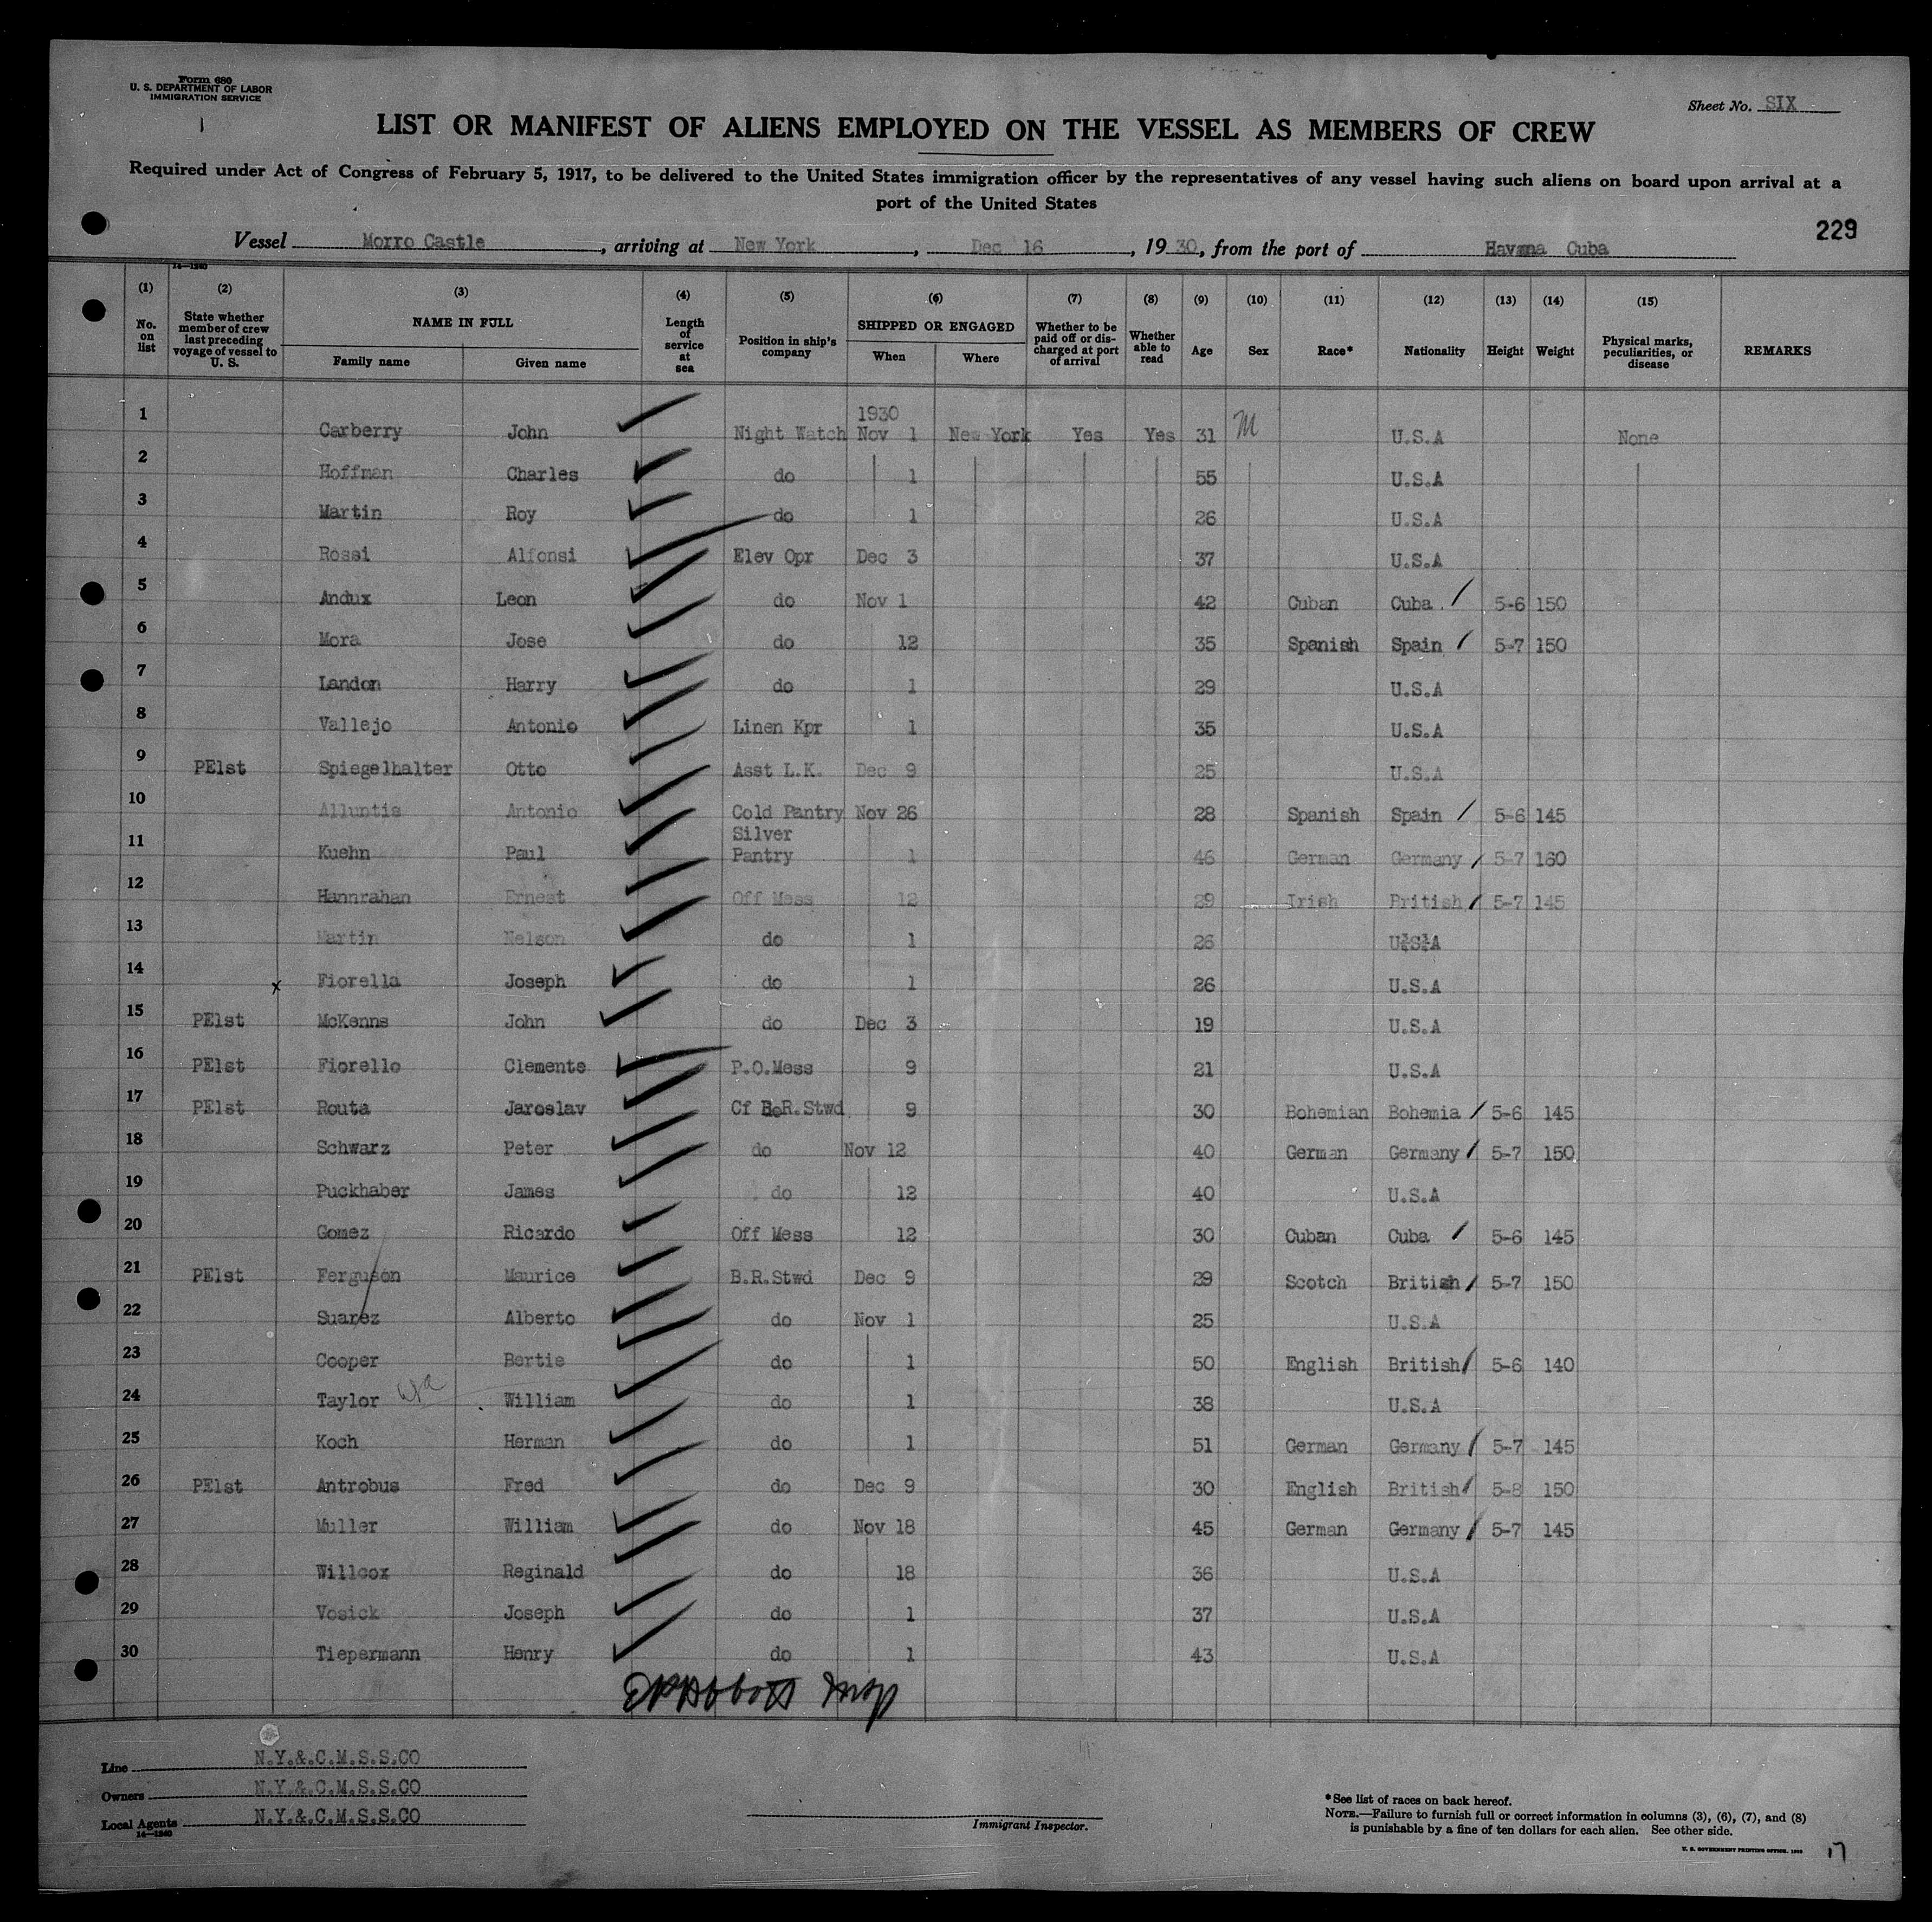 Form 680
U. S. DEPARTMENT OF LABOR
IMMIGRATION SERVICE
Sheet No. SIX
LIST OR MANIFEST OF ALIENS EMPLOYED ON THE VESSEL AS MEMBERS OF CREW
Required under Act of Congress of February 5, 1917, to be delivered to the United States immigration officer by the representatives of any vessel having such aliens on board upon arrival at a
port of the United States
229
Vessel Morro Castle, arriving at New York, Dec 16, 1930, from the port of Havana Cuba
14—1240
(1) No. on list (2) State whether member of crew last preceding voyage of vessel to U. S. (3) NAME IN FULL Family name Given name (4) Length of service at sea (5) Position in ship's company (6) SHIPPED OR ENGAGED When Where (7) Whether to be paid off or discharged at port of arrival (8) Whether able to read (9) Age (10) Sex (11) Race* (12) Nationality (13) Height (14) Weight (15) Physical marks, peculiarities, or disease REMARKS
1930
1 Carberry John Night Watch Nov 1 New York Yes Yes 31 M U.S.A None
2 Hoffman Charles do 1 55 U.S.A
3 Martin Roy do 1 26 U.S.A
4 Rossi Alfonsi Elev Opr Dec 3 37 U.S.A
5 Andux Leon do Nov 1 42 Cuban Cuba 5-6 150
6 Mora Jose do 12 35 Spanish Spain 5-7 150
7 Landon Harry do 1 29 U.S.A
8 Vallejo Antonio Linen Kpr 1 35 U.S.A
9 PElst Spiegelhalter Otto Asst L.K. Dec 9 25 U.S.A
10 Alluntis Antonio Cold Pantry Nov 26 28 Spanish Spain 5-6 145
11 Kuehn Paul Silver Pantry 1 46 German Germany 5-7 160
12 Hannrahan Ernest Off Mess 12 29 Irish British 5-7 145
13 Martin Nelson do 1 26 U.S.A
14 x Fiorella Joseph do 1 26 U.S.A
15 PElst McKenns John do Dec 3 19 U.S.A
16 PElst Fiorello Clemente P.O.Mess 9 21 U.S.A
17 PElst Routa Jaroslav Cf B.R.Stwd 9 30 Bohemian Bohemia 5-6 145
18 Schwarz Peter do Nov 12 40 German Germany 5-7 150
19 Puckhaber James do 12 40 U.S.A
20 Gomez Ricardo Off Mess 12 30 Cuban Cuba 5-6 145
21 PElst Ferguson Maurice B.R.Stwd Dec 9 29 Scotch British 5-7 150
22 Suarez Alberto do Nov 1 25 U.S.A
23 Cooper Bertie do 1 50 English British 5-6 140
24 Taylor William do 1 38 U.S.A
25 Koch Herman do 1 51 German Germany 5-7 145
26 PElst Antrobus Fred do Dec 9 30 English British 5-8 150
27 Muller William do Nov 18 45 German Germany 5-7 145
28 Willcox Reginald do 18 36 U.S.A
29 Vosick Joseph do 1 37 U.S.A
30 Tiepermann Henry do 1 43 U.S.A
Line N.Y.&.C.M.S.S.CO
Owners N.Y.&.C.M.S.S.CO
Local Agents N.Y.&.C.M.S.S.CO
14—1240
Immigrant Inspector.
*See list of races on back hereof.
NOTE.—Failure to furnish full or correct information in columns (3), (6), (7), and (8)
is punishable by a fine of ten dollars for each alien. See other side.
17